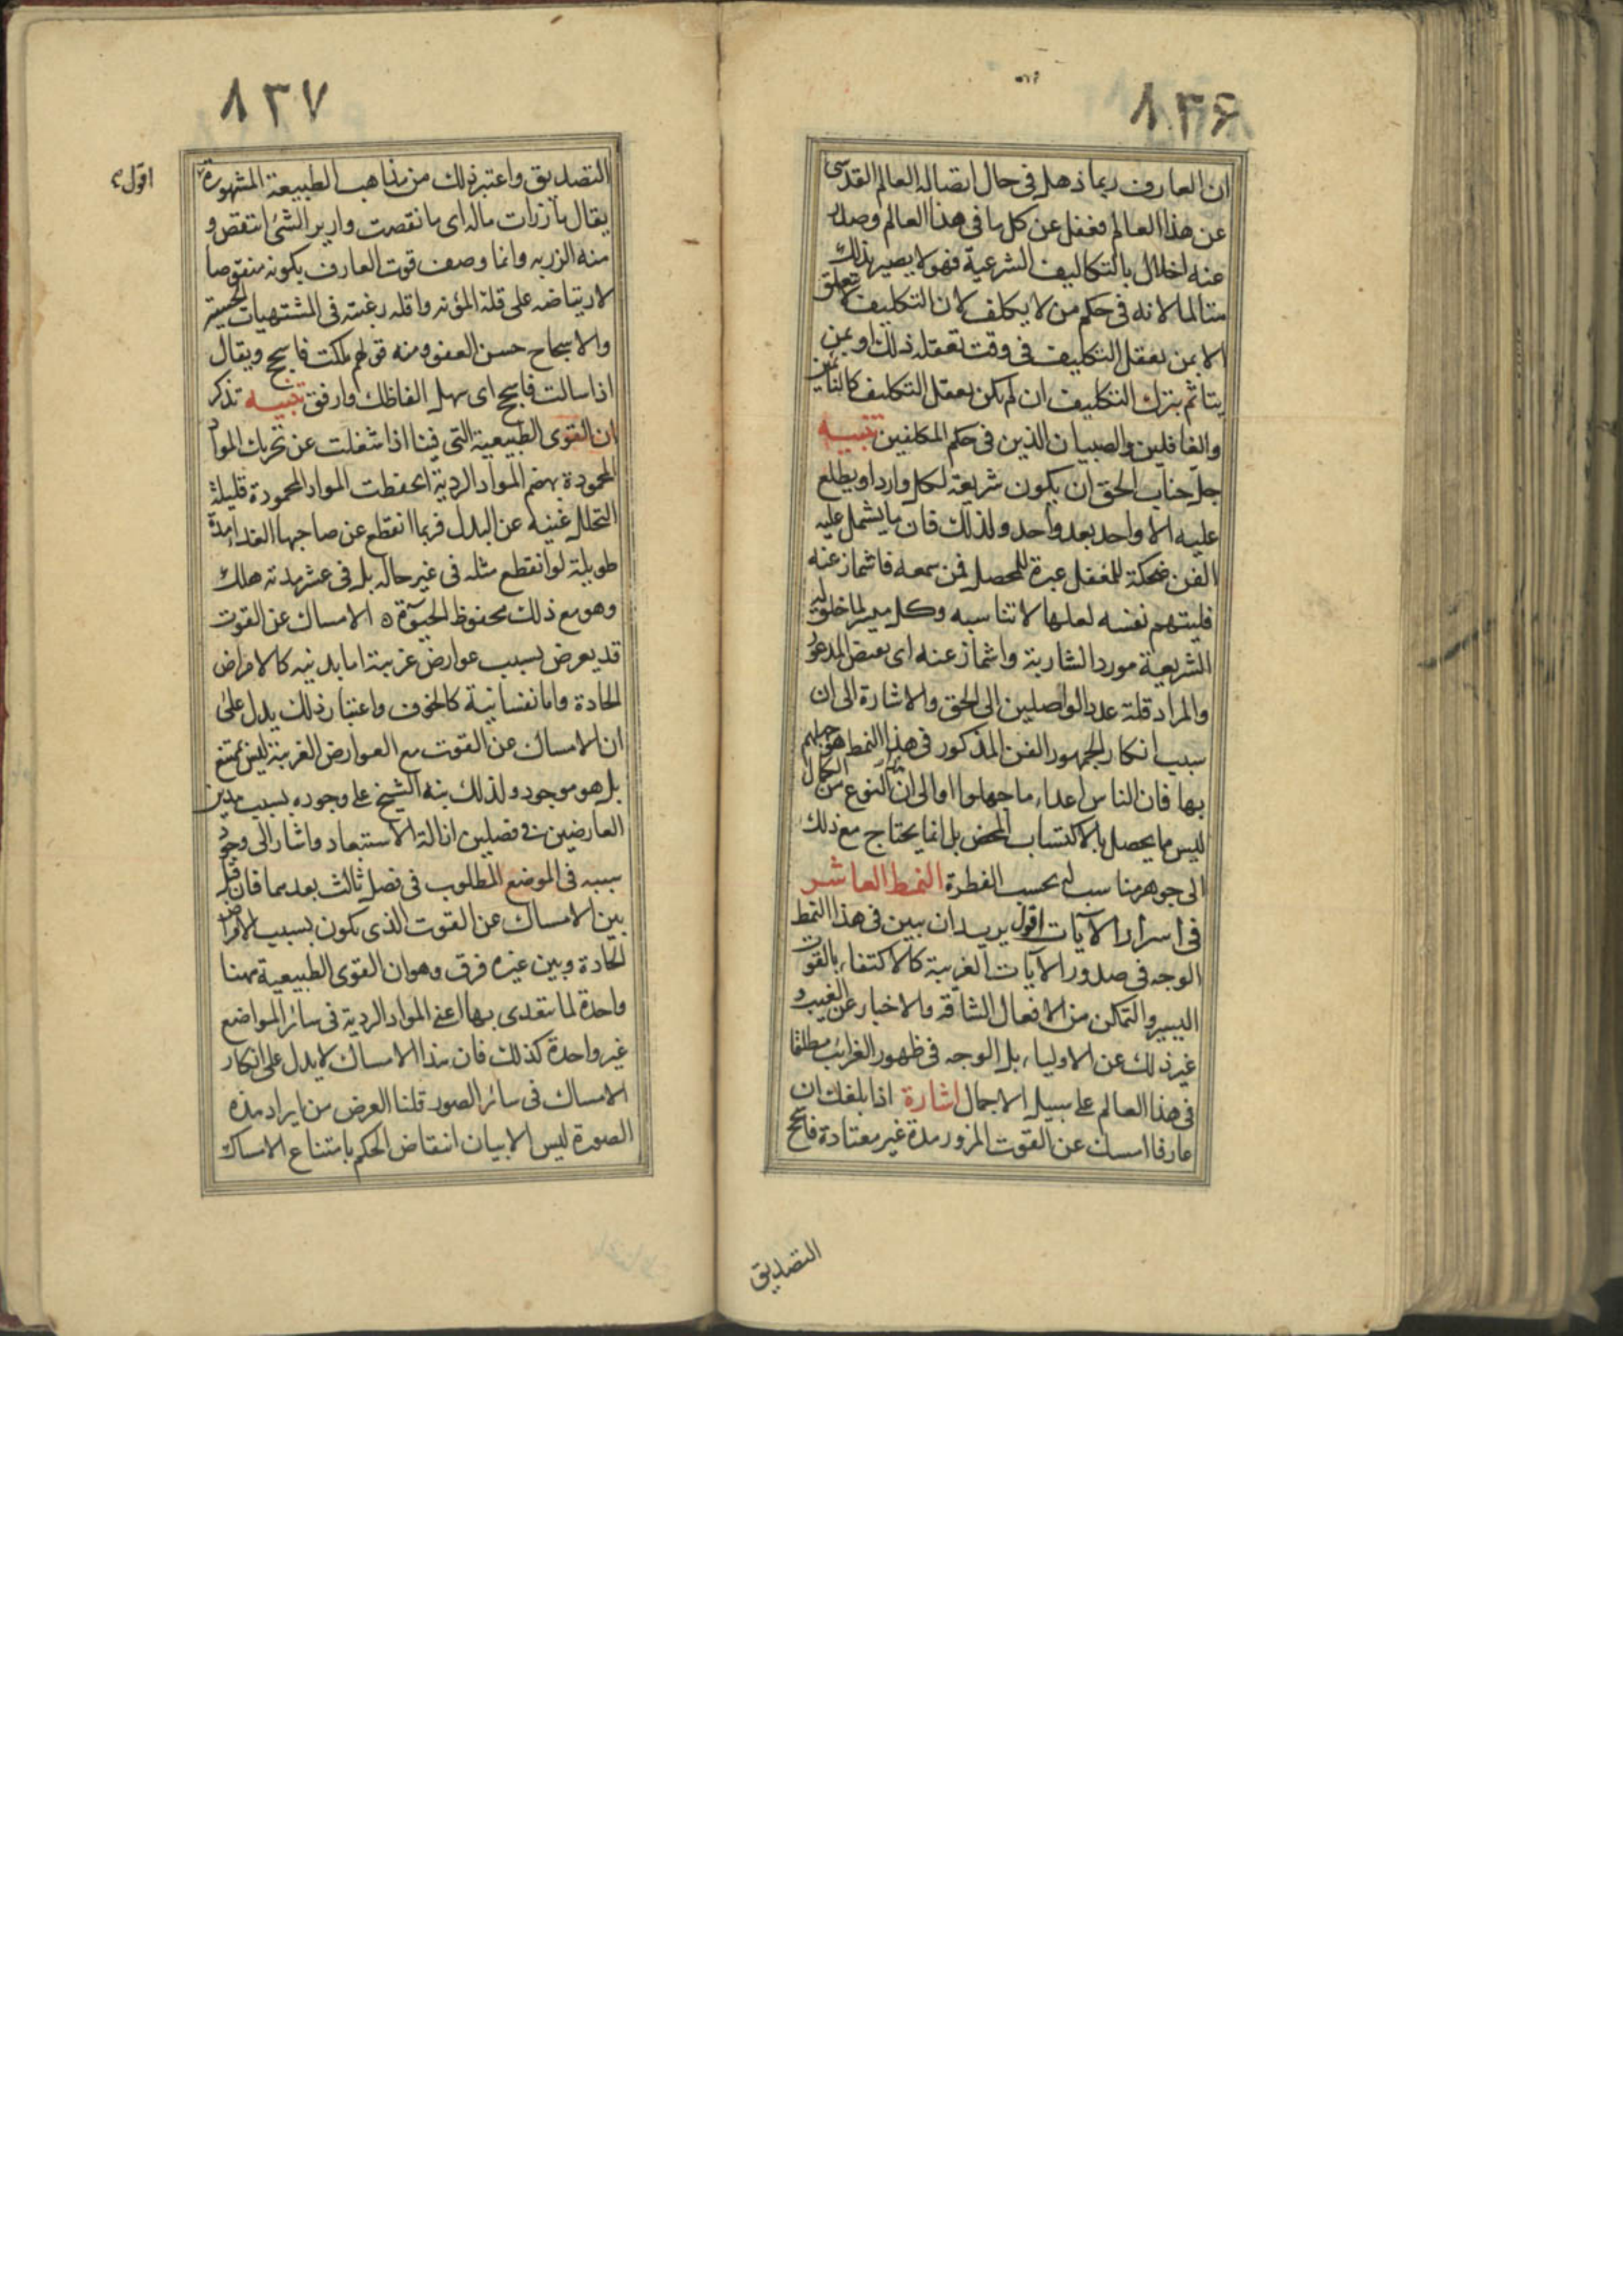 ٨٣۶
ان العارف ربما ذهل فى حال اتصاله العالم القدسى
عن هذا العالم فغفل عن كل ما فى هذا العالم وصدر
عنه اخلال بالتكاليف الشرعية فهو لا يصير بذلك
متالما لانه فى حكم من لا يكلف لان التكليف لا تعلق
الا بمن يعقل التكليف فى وقت تعقله ذلك او بمن
يتاثم بترك التكليف ان لم يكن يعقل التكليف كالنائمين
والغافلين والصبيان الذين فى حكم المكلفين تنبيه
جل جناب الحق ان يكون شريعة لكل وارد او يطلع
عليه الا واحد بعد واحد ولذلك فان ما يشمل عليه
الفن ضحكة للمغفل عبرة للمحصل فمن سمعه فاشماز عنه
فليتهم نفسه لعلها لا تناسبه وكل ميسر لما خلق له
الشريعة مورد الشاربة واشماز عنه اى
والمراد قلة عدد الواصلين الى الحق والاشارة الى ان
سبب انكار الجمهور الفن المذكور فى هذا النمط هو جهلهم
بها فان الناس اعداء ما جهلوا او الى ان النوع من الكمال
ليس ما يحصل بالاكتساب المحض بل انما يحتاج مع ذلك
الى جوهر مناسب له بحسب الفطرة النمط العاشر
فى اسرار الآيات اقول يريد ان يبين فى هذا النمط
الوجه فى صدور الآيات الغريبة كالاكتفاء بالقوت
اليسير والتمكن من الافعال الشاقه والاخبار عن الغيب و
غير ذلك عن الاولياء بل الوجه فى ظهور الغرائب مطلقا
فى هذا العالم على سبيل الاجمال اشارة اذا بلغك ان
عارفا امسك عن القوت المزور مدة غير معتادة فاسجح
التصديق
٨٣٧
التصديق واعتبر ذلك من مذاهب الطبيعة المشهورة
اقول
يقال ما زرات ماله اى ما نقصت وارير الشئ انتقص و
منه الزريه وانما وصف قوت العارف بكونه منقوصا
لارتياضه على قلة المؤنه واقله رغبته فى المشتهيات الحسية
والاسجاح حسن العفو ومنه قولهم ملكت فاسجح ويقال
اذا سالت فاسجح اى سهل الفاظك وارفق تنبيه تذكر
ان القوى الطبيعية التى فينا اذا شغلت عن تحريك المواد
المحمودة بهضم المواد الردية انحفظت المواد المحمودة قليلة
التحلل غنيه عن البدل فربما انقطع عن صاحبها الغذا مدة
طويلة لو انقطع مثله فى غير حاله بل فى عشر مدته هلك
وهو مع ذلك محفوظ الحيوة ٥ الامساك عن القوت
قد يعرض بسبب عوارض غريبة اما بدنيه كالامراض
الحادة واما نفسانية كالخوف واعتبار ذلك يدل على
ان الامساك عن القوت مع العوارض الغريبة ليس بممتنع
بل هو موجود ولذلك بنه الشيخ على وجوده بسبب هذين
العارضين فى فصلين ازالة الاستبعاد واشار الى وجود
سببه فى الموضع المطلوب فى فصل ثالث بعدهما فان قيل
بين الامساك عن القوت الذى يكون بسبب الامراض
الحادة وبين غيره فرق وهو ان القوى الطبيعية ههنا
واحدة لما تتغدى بها اعنى المواد الردية فى سائر المواضع
غير واحدة كذلك فان هذا الامساك لا يدل على انكار
الامساك فى سائر الصور قلنا الغرض من ايراد هذه
الصورة ليس الا بيان انتقاض الحكم بامتناع الامساك